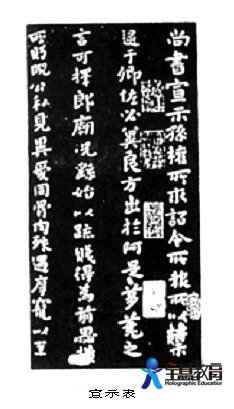 尚書宣示孫權所求詔令所報所以博示
逮于卿佐必冀良方出於阿是芻蕘之
言可擇郎廟況繇始以疏賤得為前恩橫
所盼睨公私見異愛同骨肉殊遇厚寵以至
宣示表
全景教育
Holographic Education